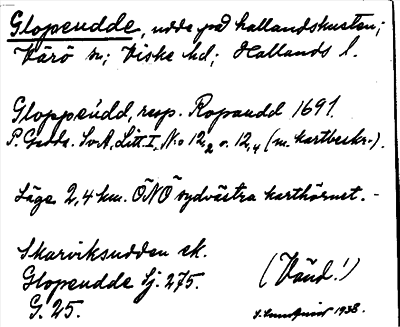 Glopeudde, udde på hallandskusten;
Värö sn; Viske hd; Hallands l.
Gloppeúdd, resp. Ropaudd 1691.
P. Gedda. SvA, Litt. I, N:o 12,2 o. 12,4 (m. kartbeskr.).
Läge 2,4 km. ÖNÖ sydvästra karthörnet. -
Skarviksudden ek.
Glopeudde Sj. 275.
G. 25.
(Vänd!)
1938.